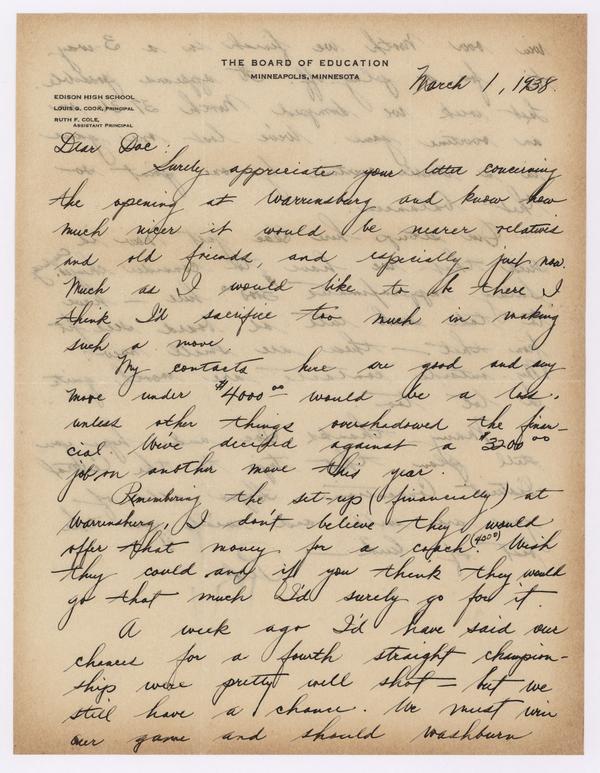 THE BOARD OF EDUCATION
MINNEAPOLIS, MINNESOTA
March 1, 1938.
EDISON HIGH SCHOOL
LOUIS G. COOK, PRINCIPAL
RUTH F. COLE,
ASSISTANT PRINCIPAL
Dear Doc:
Surely appreciate your letter concerning
the opening at Warrensburg and know how
much nicer it would be nearer relatives
and old friends, and especially just now.
Much as I would like to be there I
think I'd sacrifice too much in making
such a move.
My contacts here are good and any
move under $4000.00 would be a loss.
unless other things overshadowed the finan-
cial. We've decided against a $3200.00
job on another move this year.
Remembering the set-up (financially) at
Warrensburg, I don't believe they would
offer that money for a coach. (4000) Wish
they could and if you think they would
go that much I'd surely go for it.
A week ago I'd have said our
chances for a fourth straight champion-
ship were pretty well shot — but we
still have a chance. We must win
our game and should Washburn